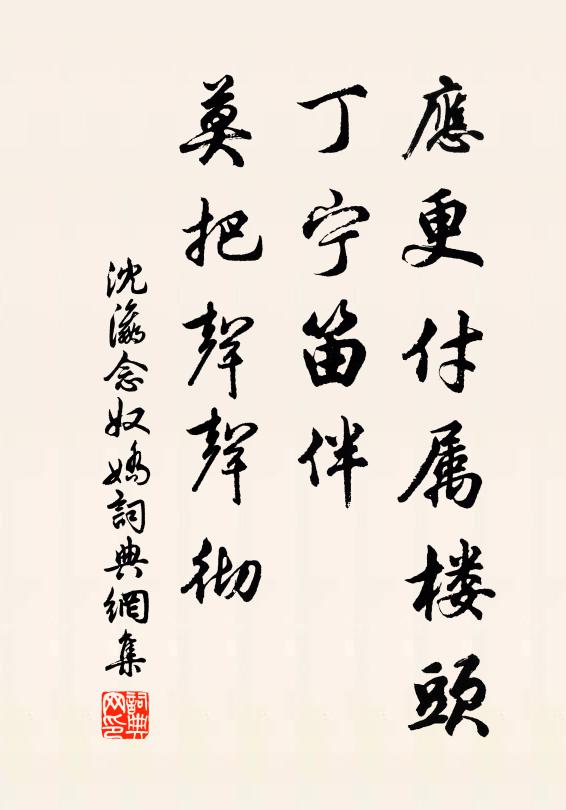 應更付属楼頭
丁宁笛伴
莫把聲聲彻
沈瀛念奴嬌詞典網集
詞典网印